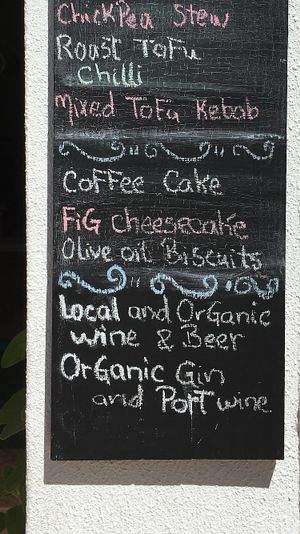 ChickPea Stew
Roast Tofu
Chilli
Mixed Tofu Kebab
Coffee Cake
FiG Cheesecake
Olive oil Biscuits
Local and OrGanic
wine & Beer
OrGanic Gin
and Port wine